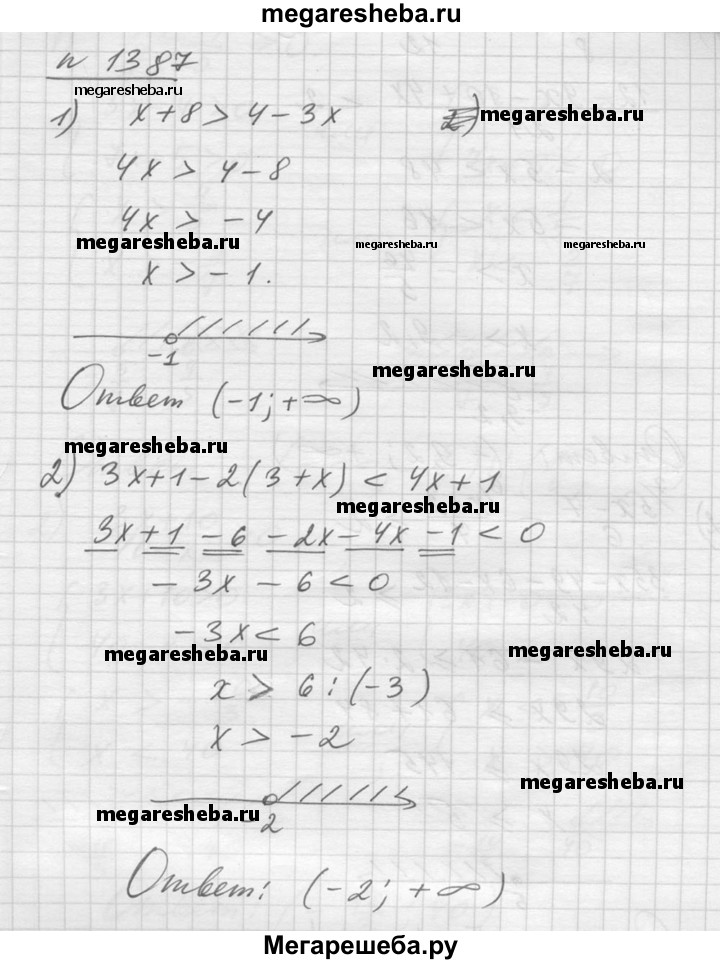 megaresheba.ru
n 1387
megaresheba.ru
1) x+8 > 4-3x 2) megaresheba.ru
4x > 4-8
4x > -4
megaresheba.ru megaresheba.ru megaresheba.ru
x > -1.
-1
megaresheba.ru
Ответ (-1; +∞)
megaresheba.ru
2) 3x+1-2(3+x) < 4x+1
megaresheba.ru
3x+1-6-2x-4x-1<0
-3x-6<0
-3x<6
megaresheba.ru megaresheba.ru
x > 6:(-3)
x > -2
megaresheba.ru
megaresheba.ru
-2
Ответ: (-2; +∞)
Мегарешеба.ру